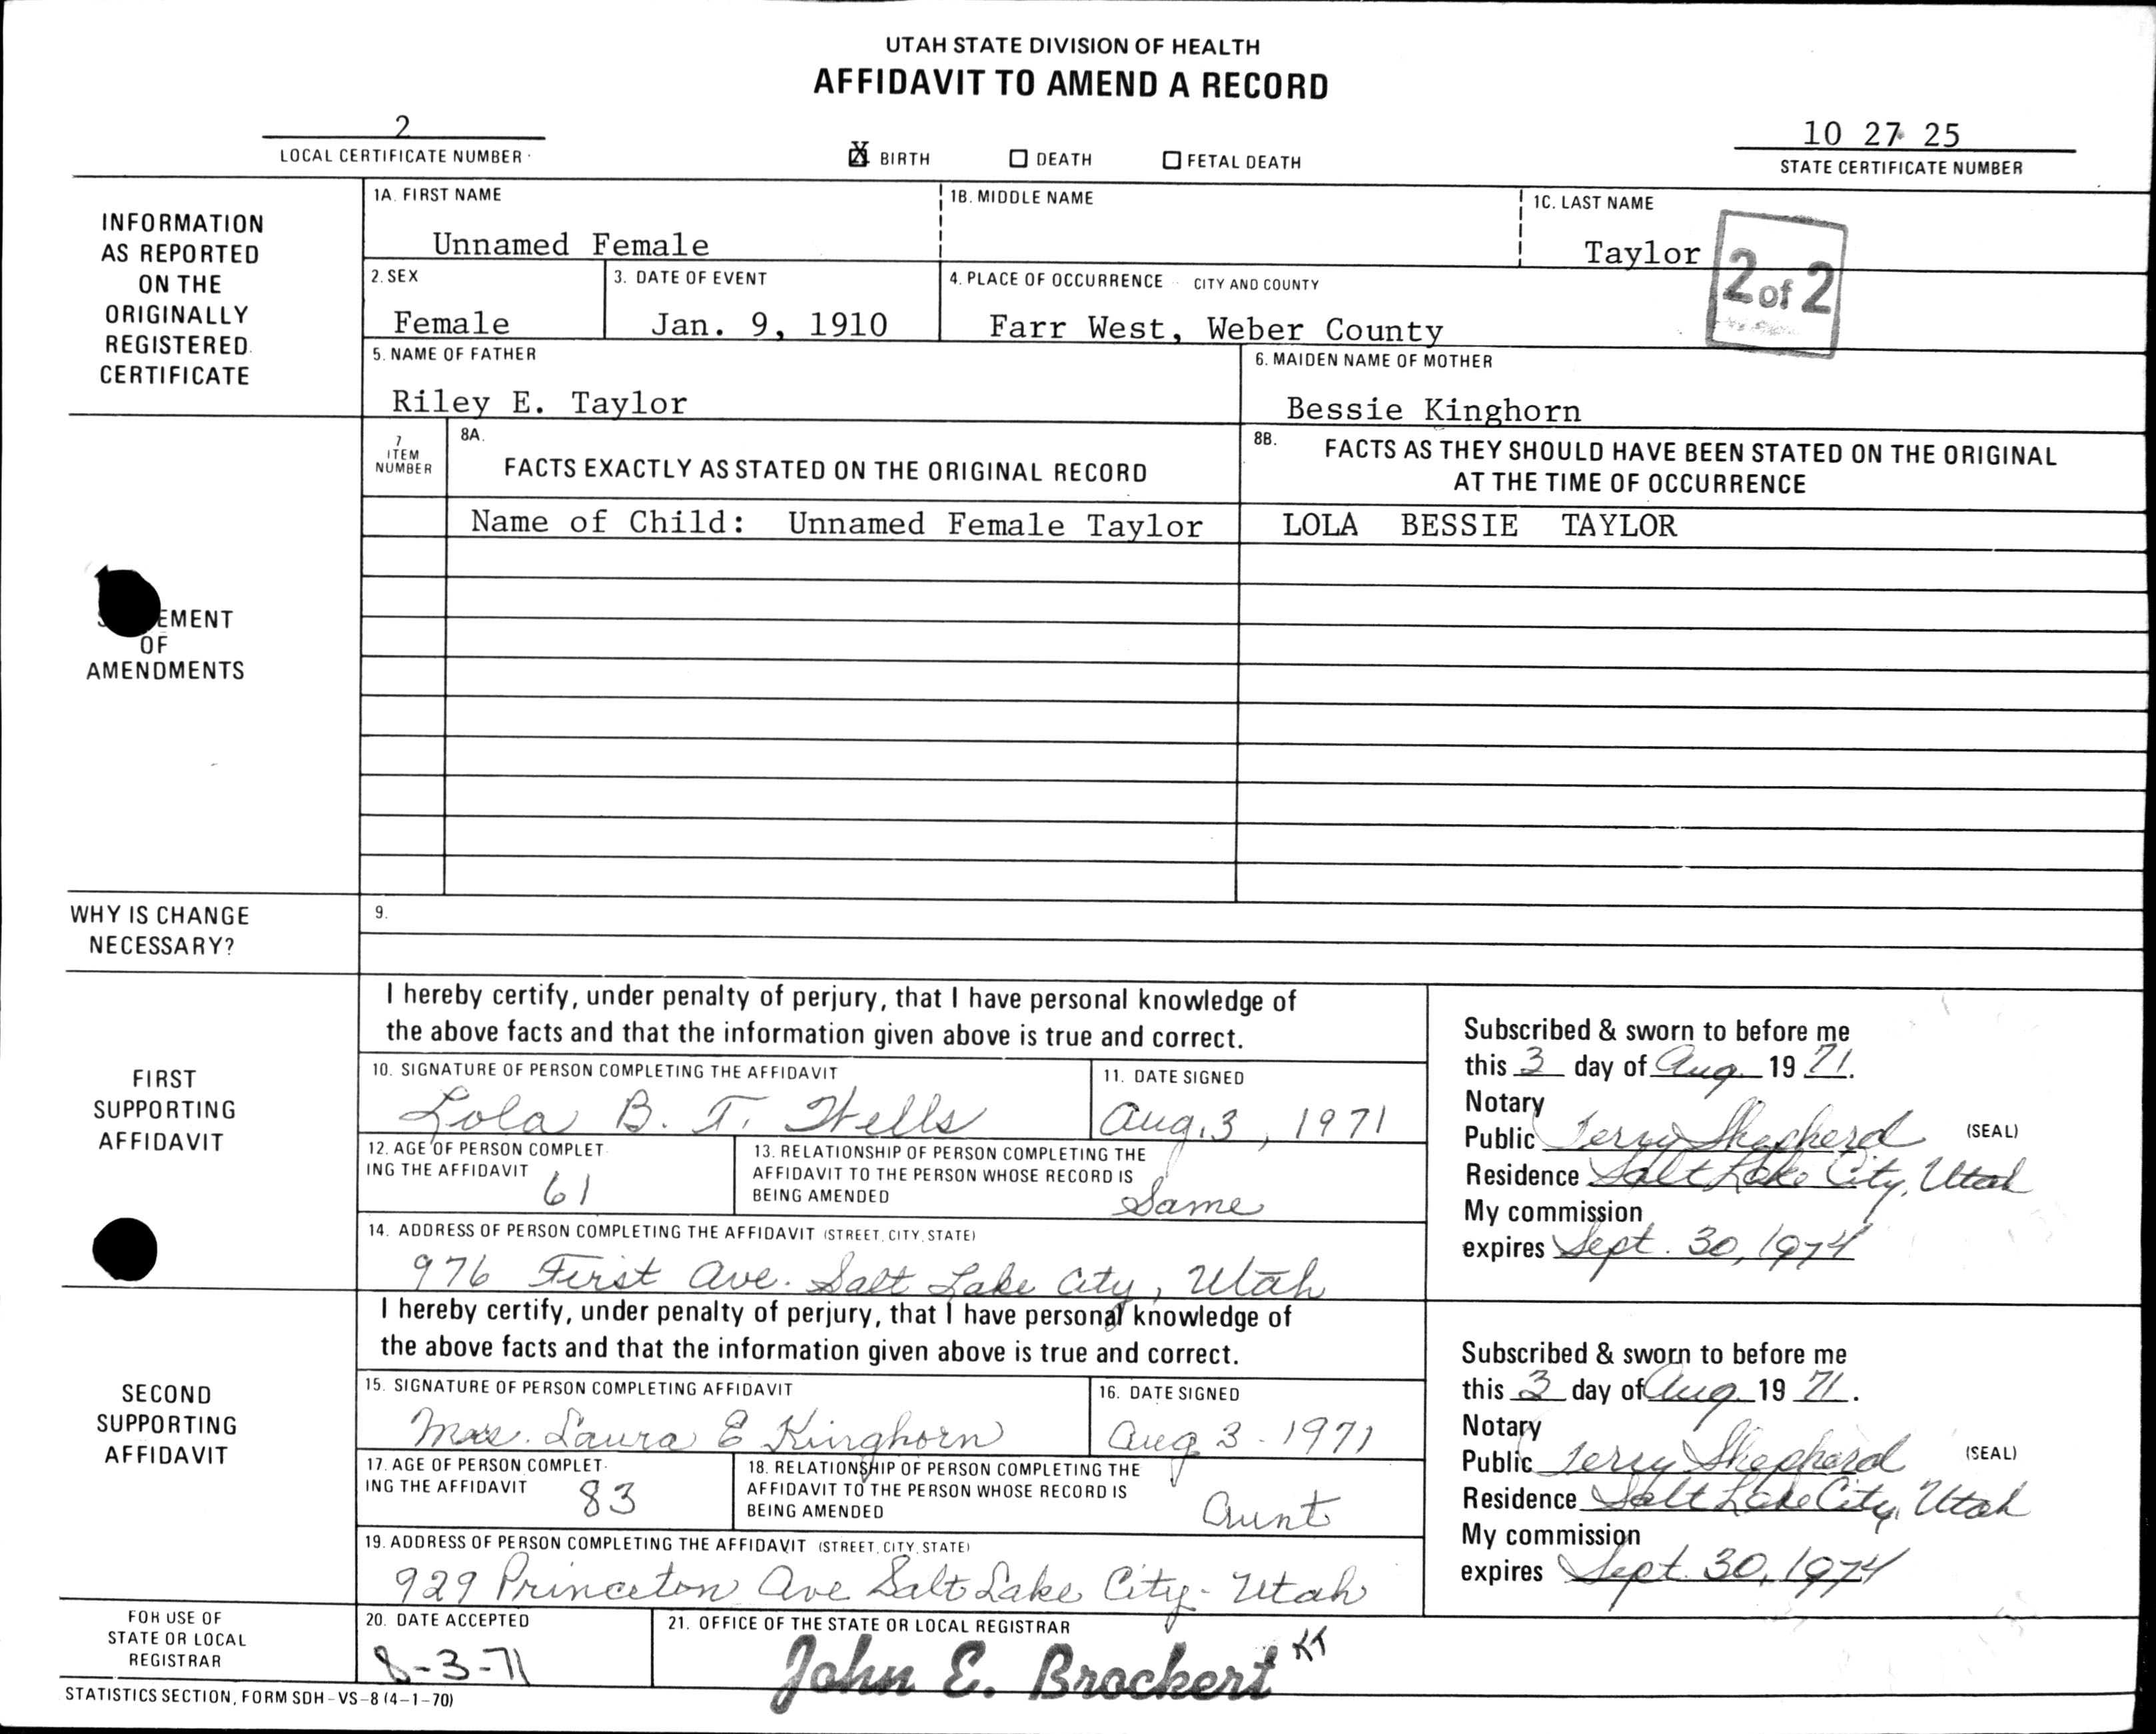 UTAH STATE DIVISION OF HEALTH
AFFIDAVIT TO AMEND A RECORD
2
LOCAL CERTIFICATE NUMBER
X BIRTH
DEATH
FETAL DEATH
10 27 25
STATE CERTIFICATE NUMBER
INFORMATION
AS REPORTED
ON THE
ORIGINALLY
REGISTERED
CERTIFICATE
1A. FIRST NAME
Unnamed Female
1B. MIDDLE NAME
1C. LAST NAME
Taylor
2 of 2
2. SEX
Female
3. DATE OF EVENT
Jan. 9, 1910
4. PLACE OF OCCURRENCE CITY AND COUNTY
Farr West, Weber County
5. NAME OF FATHER
Riley E. Taylor
6. MAIDEN NAME OF MOTHER
Bessie Kinghorn
EMENT
OF
AMENDMENTS
7
ITEM
NUMBER
8A.
FACTS EXACTLY AS STATED ON THE ORIGINAL RECORD
8B. FACTS AS THEY SHOULD HAVE BEEN STATED ON THE ORIGINAL
AT THE TIME OF OCCURRENCE
Name of Child: Unnamed Female Taylor
LOLA BESSIE TAYLOR
WHY IS CHANGE
NECESSARY?
9.
FIRST
SUPPORTING
AFFIDAVIT
I hereby certify, under penalty of perjury, that I have personal knowledge of
the above facts and that the information given above is true and correct.
10. SIGNATURE OF PERSON COMPLETING THE AFFIDAVIT
Lola B. T. Wells
11. DATE SIGNED
Aug. 3, 1971
12. AGE OF PERSON COMPLET
ING THE AFFIDAVIT
61
13. RELATIONSHIP OF PERSON COMPLETING THE
AFFIDAVIT TO THE PERSON WHOSE RECORD IS
BEING AMENDED
Same
14. ADDRESS OF PERSON COMPLETING THE AFFIDAVIT (STREET, CITY, STATE)
976 First Ave. Salt Lake City, Utah
Subscribed & sworn to before me
this 3 day of Aug. 19 71.
Notary
Public Terry Shepherd (SEAL)
Residence Salt Lake City, Utah
My commission
expires Sept. 30, 1974
SECOND
SUPPORTING
AFFIDAVIT
I hereby certify, under penalty of perjury, that I have personal knowledge of
the above facts and that the information given above is true and correct.
15. SIGNATURE OF PERSON COMPLETING AFFIDAVIT
Mrs. Laura E Kinghorn
16. DATE SIGNED
Aug 3 - 1971
17. AGE OF PERSON COMPLET-
ING THE AFFIDAVIT
83
18. RELATIONSHIP OF PERSON COMPLETING THE
AFFIDAVIT TO THE PERSON WHOSE RECORD IS
BEING AMENDED
Aunt
19. ADDRESS OF PERSON COMPLETING THE AFFIDAVIT (STREET, CITY, STATE)
929 Princeton Ave Salt Lake City - Utah
Subscribed & sworn to before me
this 3 day of Aug. 19 71.
Notary
Public Terry Shepherd (SEAL)
Residence Salt Lake City, Utah
My commission
expires Sept. 30, 1974
FOR USE OF
STATE OR LOCAL
REGISTRAR
20. DATE ACCEPTED
8-3-71
21. OFFICE OF THE STATE OR LOCAL REGISTRAR
John E. Brockert KT
STATISTICS SECTION, FORM SDH-VS-8 (4-1-70)